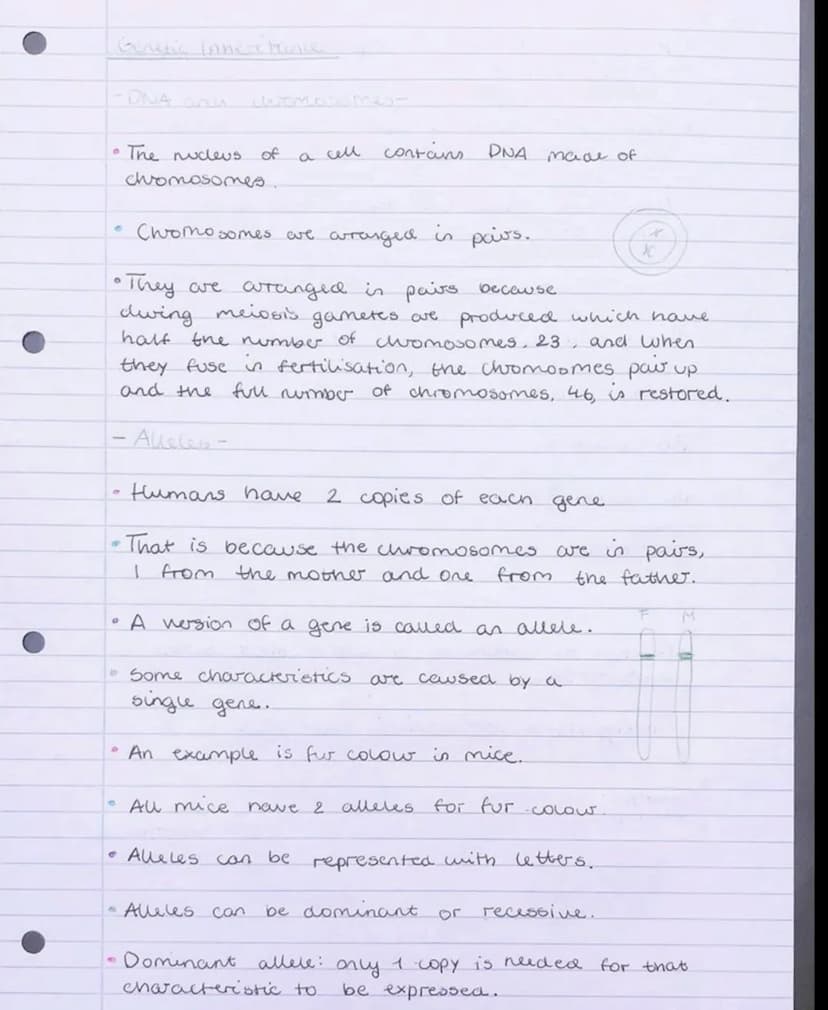 Genetic Inheritance
- DNA and chromosomes -
• The nucleus of a cell contains DNA made of
chromosomes.
• Chromosomes are arranged in pairs.
• They are arranged in pairs because
during meiosis gametes are produced which have
half the number of chromosomes, 23, and when
they fuse in fertilisation, the chromosmes pair up
and the full number of chromosomes, 46, is restored.
- Alleles -
• Humans have 2 copies of each gene
• That is because the chromosomes are in pairs,
1 from the mother and one from the father.
F M
• A version of a gene is called an allele.
• Some characteristics are caused by a
single gene.
• An example is fur colour in mice.
• All mice have 2 alleles for fur colour.
• Alleles can be represented with letters.
• Alleles can be dominant or recessive.
• Dominant allele: only 1 copy is needed for that
characteristic to be expressed.